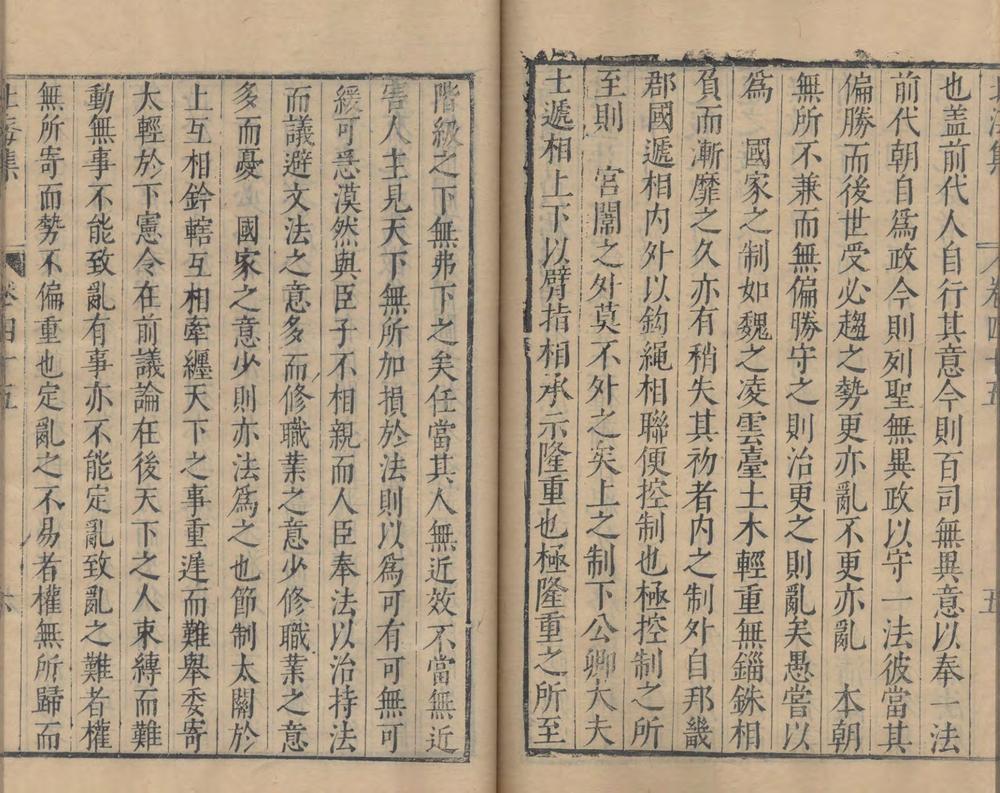 卷四十五
五
也盖前代人自行其意今則百司無異意以奉一法
前代朝自爲政今則列聖無異政以守一法彼當其
偏勝而後世受必趨之勢更亦亂不更亦亂 本朝
無所不兼而無偏勝守之則治更之則亂矣愚嘗以
爲 國家之制如魏之凌雲臺土木輕重無錙銖相
負而漸靡之久亦有稍失其初者内之制外自邦畿
郡國遞相内外以鈎繩相聯便控制也極控制之所
至則 宮闈之外莫不外之矣上之制下公卿大夫
士遞相上下以臂指相承示隆重也極隆重之所至
階級之下無弗下之矣任當其人無近效不當無近
害人主見天下無所加損於法則以爲可有可無可
緩可急漠然與臣子不相親而人臣奉法以治持法
而議避文法之意多而修職業之意少修職業之意
多而憂 國家之意少則亦法爲之也節制太闊於
上互相鈐轄互相牽纏天下之事重遲而難舉委寄
太輕於下憲令在前議論在後天下之人束縛而難
動無事不能致亂有事亦不能定亂致亂之難者權
無所寄而勢不偏重也定亂之不易者權無所歸而
卷四十五
六